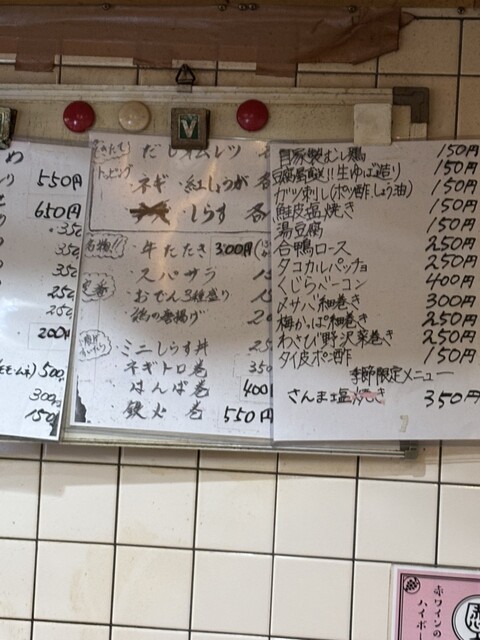 め
550円
650円
350
350
350
250
250
200円
500
300
150
だしオムレツ 各
トッピング
ネギ・紅しょうが 各
しらす 各
名物!! 牛たたき 300円
定番 スパサラ 15
おでん3種盛り 15
鶏の唐揚げ 20
ミニしらす丼 25
ネギトロ巻 350
はんぱ巻 400
鉄火巻 550円
自家製むし鶏 150円
豆腐屋直送!!生ゆば造り 150円
ガツ刺し(ポン酢、しょう油) 150円
鮭皮塩焼き 150円
湯豆腐 150円
合鴨ロース 250円
タコカルパッチョ 250円
くじらベーコン 400円
〆サバ細巻き 300円
梅かっぱ細巻き 250円
わさび野沢菜巻き 250円
タイ皮ポン酢 150円
季節限定メニュー
さんま塩焼き 350円
赤ワインの
ハイボ